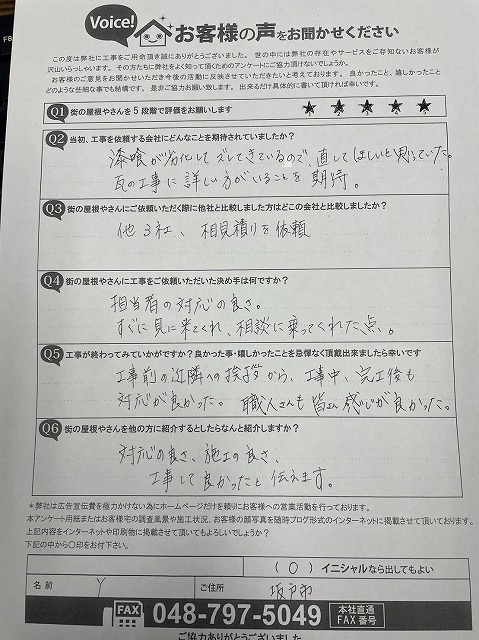 Voice!
お客様の声をお聞かせください
この度は弊社に工事をご用命頂き誠にありがとうございました。世の中には弊社の存在やサービスをご存知ないお客様が
沢山いらっしゃいます。その方たちに弊社をよく知って頂くためのアンケートにご協力頂けないでしょうか。
お客様のご意見をお聞かせいただき今後の活動に反映させていただきたいと考えております。良かったこと、嬉しかったこと
どのような些細な事でも結構です。是非ご協力お願い致します。出来るだけ具体的に書いて頂ければ幸いです。
Q1 街の屋根やさんを5段階で評価をお願いします ★ ★ ★ ★ ★
Q2 当初、工事を依頼する会社にどんなことを期待されていましたか?
漆喰が劣化してズレてきているので、直してほしいと思っていた。
瓦の工事に詳しい方がいることを期待。
Q3 街の屋根やさんにご依頼いただく際に他社と比較しました方はどこの会社と比較しましたか?
他3社、相見積りを依頼
Q4 街の屋根やさんに工事をご依頼いただいた決め手は何ですか?
担当者の対応の良さ。
すぐに見に来てくれ、相談に乗ってくれた点、。
Q5 工事が終わってみていかがですか?良かった事・嬉しかったことを忌憚なく頂戴出来ましたら幸いです
工事前の近隣への挨拶から、工事中、完工後も
対応が良かった。職人さんも皆さん感じが良かった。
Q6 街の屋根やさんを他の方に紹介するとしたらなんと紹介しますか?
対応の良さ、施工の良さ、
工事して良かったと伝えます。
*弊社は広告宣伝費を極力かけない為にホームページだけを頼りにお客様への営業活動を行っております。
本アンケート用紙またはお客様宅の調査風景や施工状況、お客様の顔写真を随時ブログ形式のインターネットに掲載させて頂いております。
上記内容をインターネットや印刷物に掲載させて頂いてもよろしいでしょうか?
下記の中から○印をお付下さい。
(○) イニシャルなら出してもよい
名前 Y ご住所 坂戸市
FAX 048-797-5049 本社直通 FAX番号
ご協力ありがとうございました